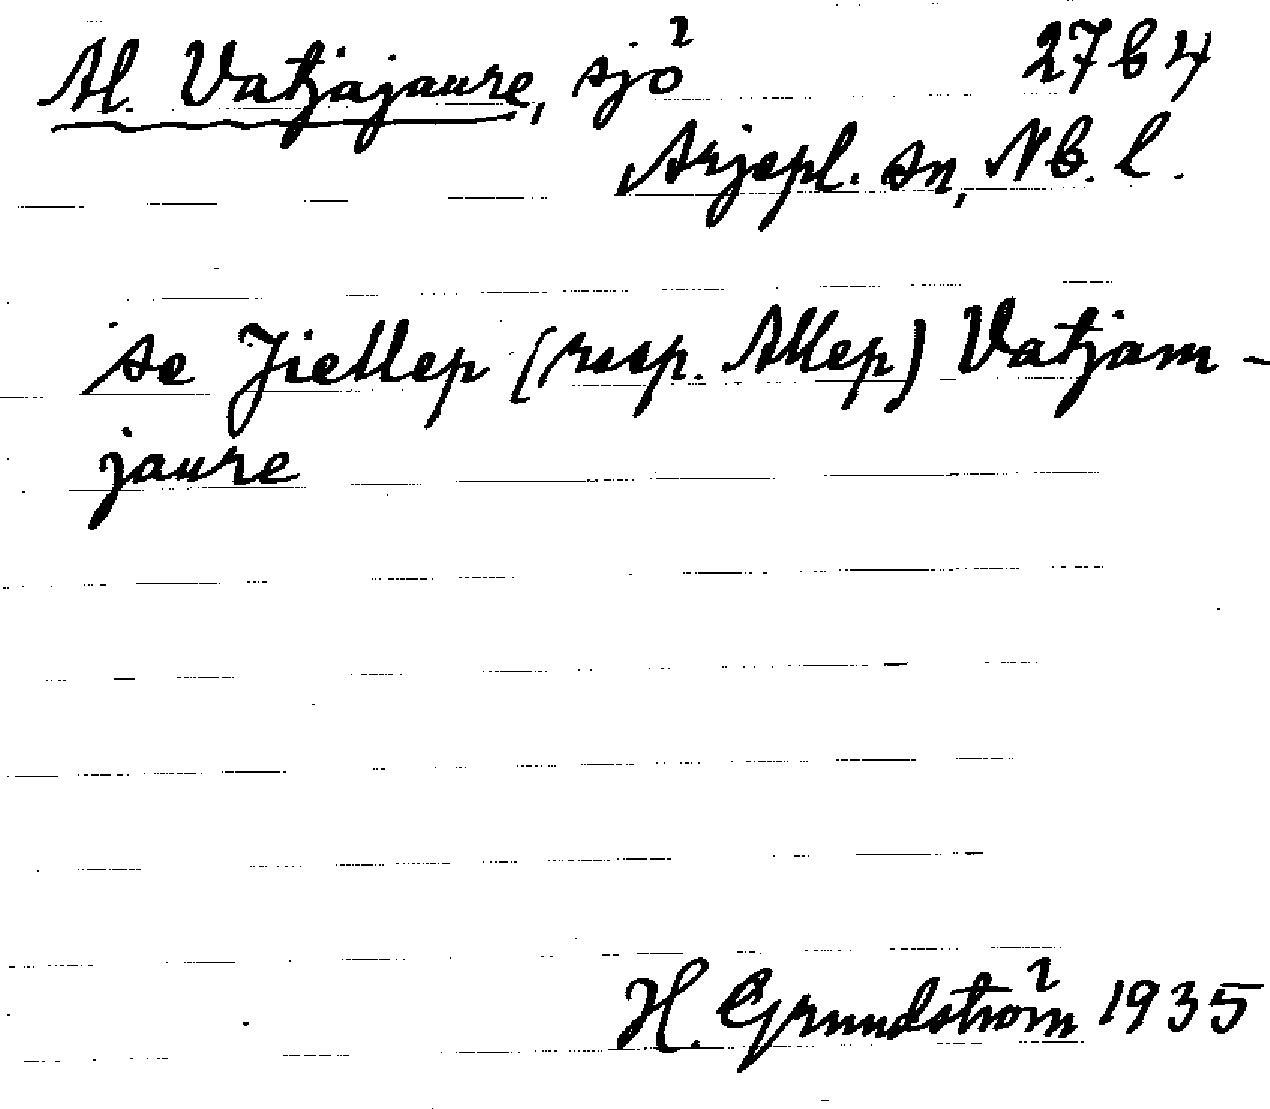 Al. Vatjajaure, sjö 27 b 4
Arjepl. sn, Nb. l.
se Jiellep (resp. Allep) Vatjam-
jaure
H. Grundström 1935